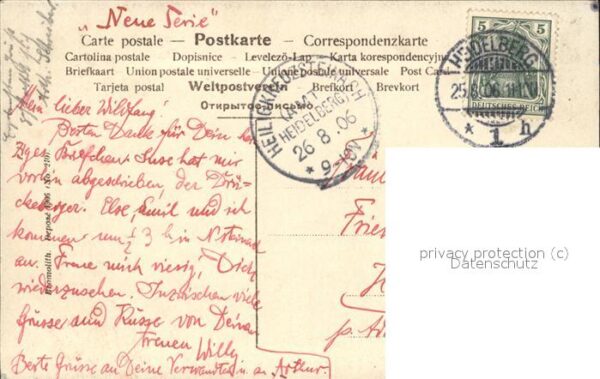 "Neue Serie"
Carte postale — Postkarte — Correspondenzkarte
Cartolina postale Dopisnice Levelezö-Lap Karta korespondencyjna
Briefkaart Union postale universelle Unione postale universale Post Card
Tarjeta postal Weltpostverein Brefkort Brevkort
Открытое письмо
5 5
DEUTSCHES REICH
HEIDELBERG
25.8.06.
* 1 h
HEILIGKREUZSTEINACH
(AMT HEIDELBERG)
26 8 06
* 9-10V
Mein lieber Wildfang!
Besten Dank für Dein
Briefchen. Suse hat mir
vorhin abgeschrieben, der
Else, Emil und ich
kommen um 3 h in
an. Freue mich riesig, Dich
wiederzusehen. Inzwischen viele
Grüsse und Küsse von Deinem
treuen Willy
Beste Grüsse an Deine Verwandten u. an Arthur.
privacy protection (c)
Datenschutz